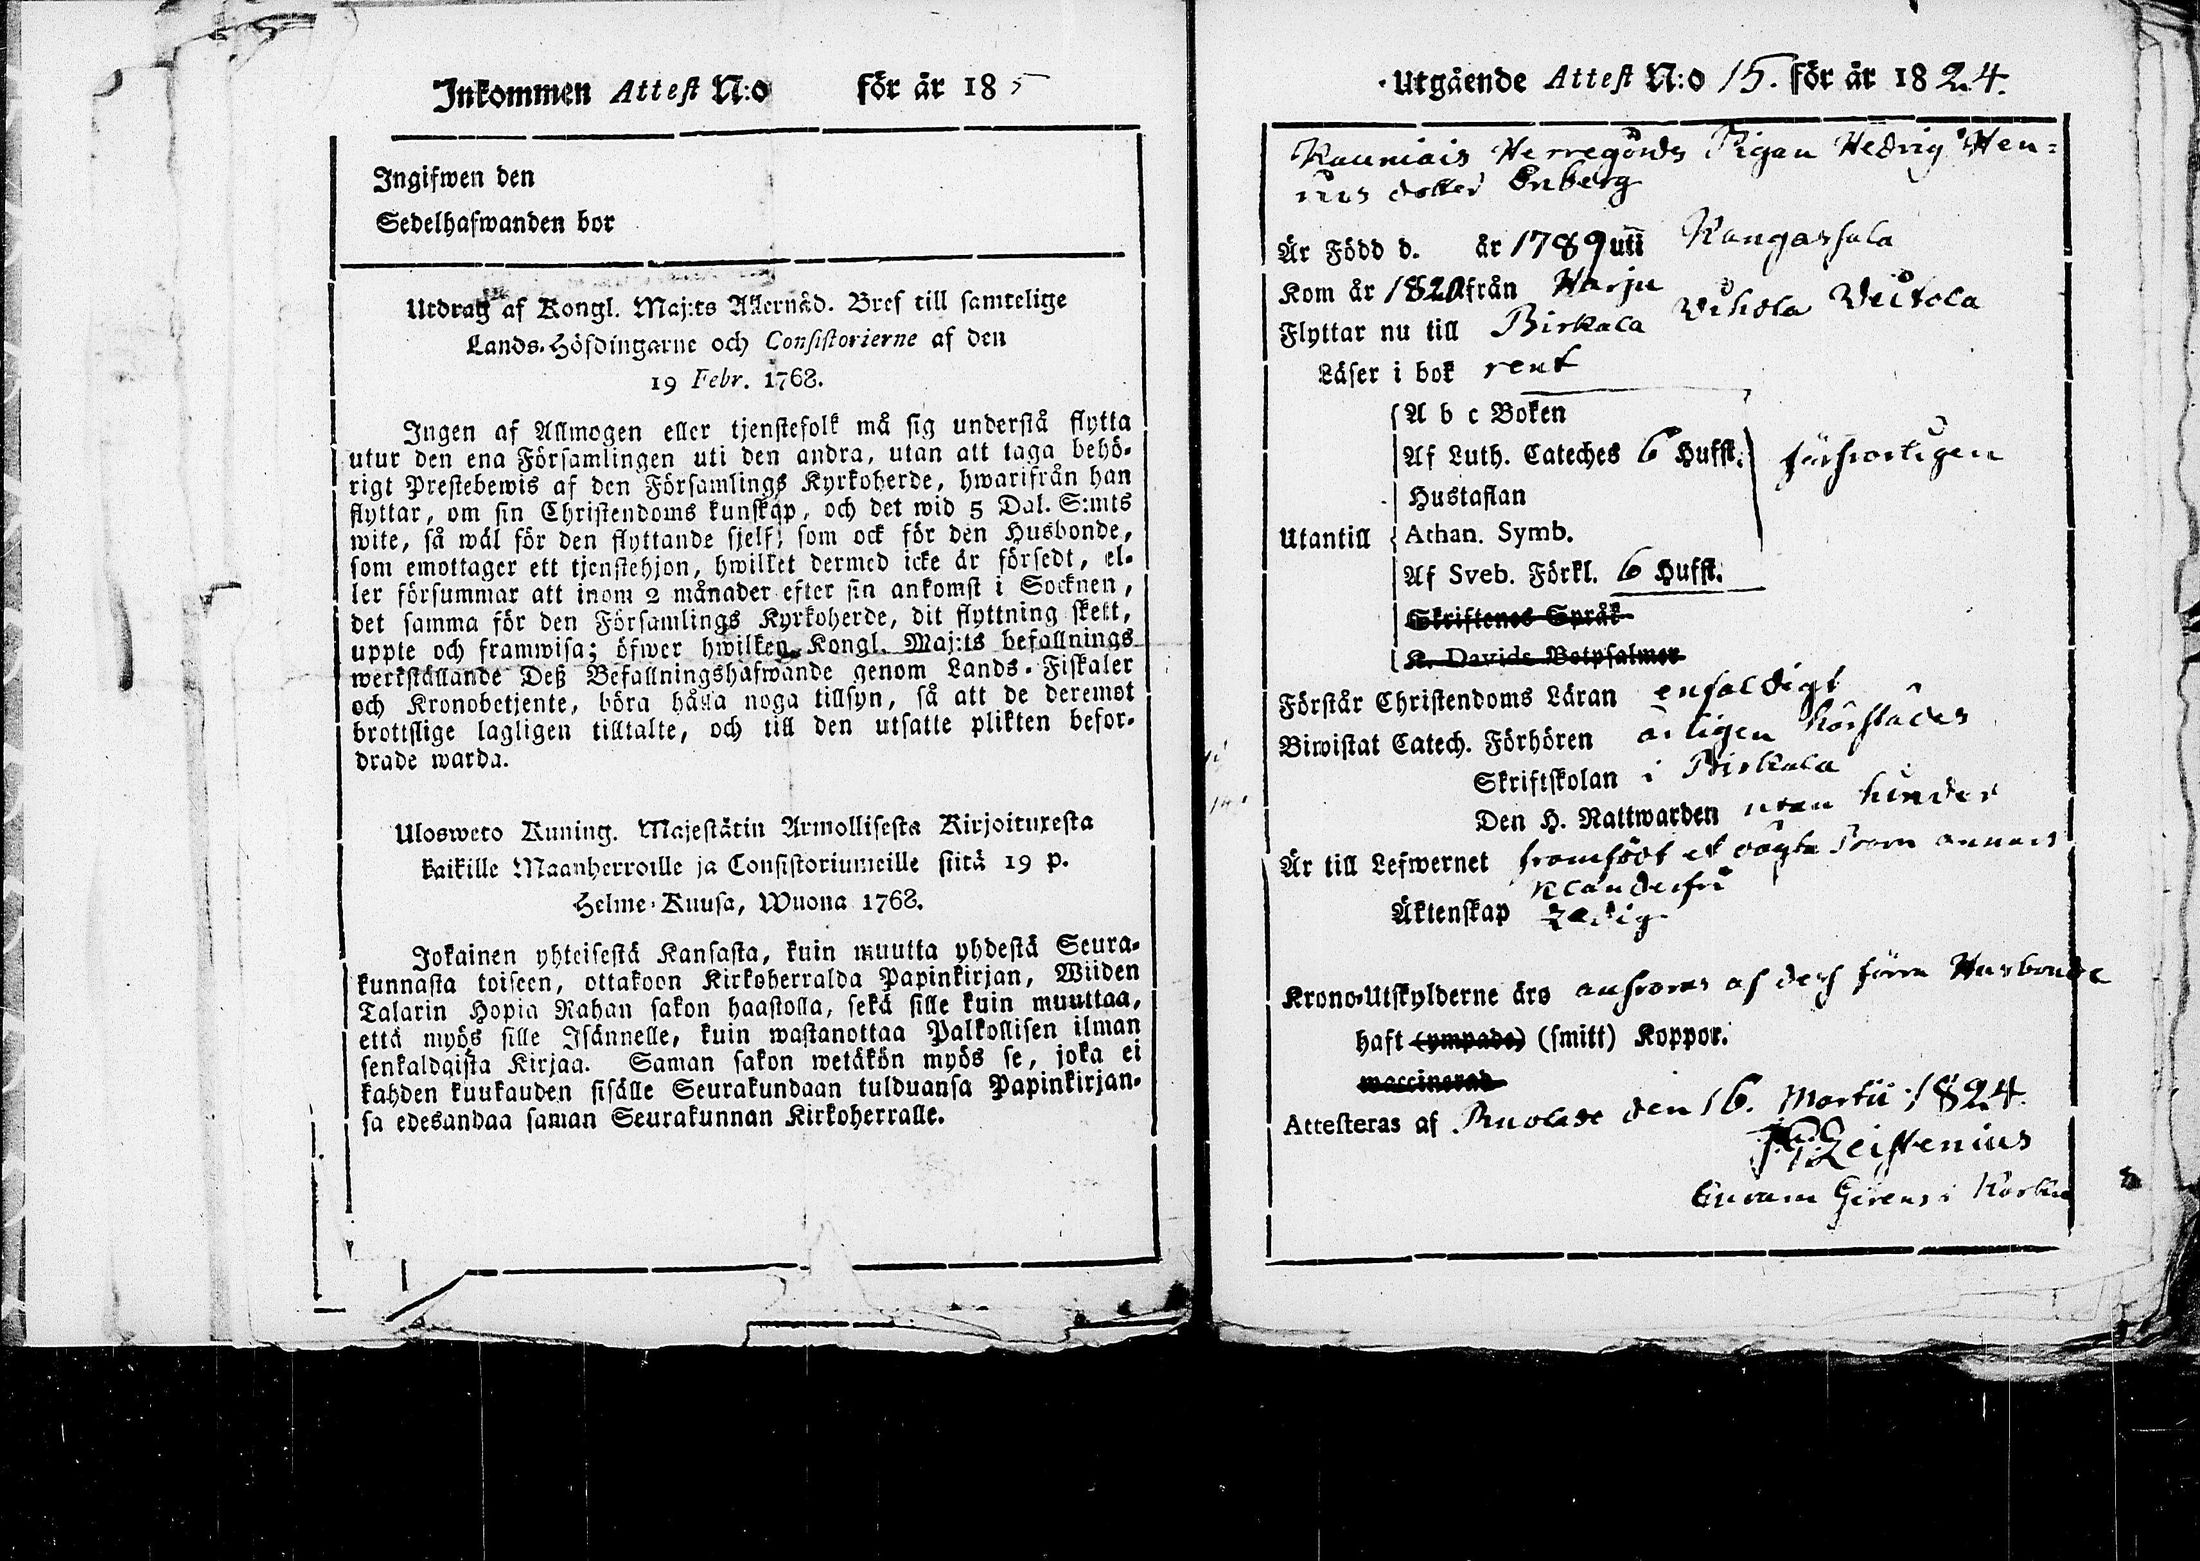 Inkommen Attest N:o för år 18
Ingifwen den
Sedelhafwanden bor
Utdrag af Kongl. Maj:ts Allernåd. Bref till samtelige
Lands-Höfdingarne och Consistorierne af den
19 Febr. 1768.
Ingen af Allmogen eller tjenstefolk må sig understå flytta
utur den ena Församlingen uti den andra, utan att taga behö-
rigt Prestebewis af den Församlings Kyrkoherde, hwarifrån han
flyttar, om sin Christendoms kunskap, och det wid 5 Dal. S:mts
wite, så wäl för den flyttande sjelf, som ock för den Husbonde,
som emottager ett tjenstehjon, hwilket dermed icke är försedt, el-
ler försummar att inom 2 månader efter sin ankomst i Socknen,
det samma för den Församlings Kyrkoherde, dit flyttning skett,
uppte och framwisa; öfwer hwilken Kongl. Maj:ts befallnings
werkställande Deß Befallningshafwande genom Lands-Fiskaler
och Kronobetjente, böra hålla noga tillsyn, så att de deremot
brottslige lagligen tilltalte, och till den utsatte plikten befor-
drade warda.
Ulosweto Kuning. Majestätin Armollisesta Kirjoituxesta
kaikille Maanherroille ja Consistoriumeille siitä 19 p.
Helme-Kuusa, Wuona 1768.
Jokainen yhteisestä Kansasta, kuin muutta yhdestä Seura-
kunnasta toiseen, ottakoon Kirkoherralda Papinkirjan, Wiiden
Talarin Hopia Rahan sakon haastolla, sekä sille kuin muuttaa,
että myös sille Isännelle, kuin wastanottaa Palkollisen ilman
senkaldaista Kirjaa. Saman sakon wetäkön myös se, joka ei
kahden kuukauden sisälle Seurakundaan tulduansa Papinkirjan-
sa edesandaa saman Seurakunnan Kirkoherralle.
Utgående Attest N:o 15. för år 1824.
Kauniais Herregårds Pigan Hedvig Hen-
rics dotter Enberg
Är Född d. år 1789 uti Kangasala
Kom år 1820 från Harju
Flyttar nu till Birkala Vihola Veitola
Läser i bok rent
A b c Boken
Af Luth. Cateches 6 Hufst.
Hustaflan
Utantill Athan. Symb.
Af Sveb. Förkl. 6 Hufst.
Skriftenes Språk
K. Davids Botpsalmer
Förstår Christendoms Läran enfaldigt
Biwistat Catech. Förhören årligen
Skriftskolan i Birkala
Den H. Nattwarden utan hinder
Är till Lefwernet framfödt et oägta barn annars
klanderfri
Äktenskap Ledig
Krono-Utskylderne äro ansvaras af dess förra Husbonde
haft (ympade) (smitt) Koppor.
waccinerad
Attesteras af den 16. Martii 1824.
Leistenius